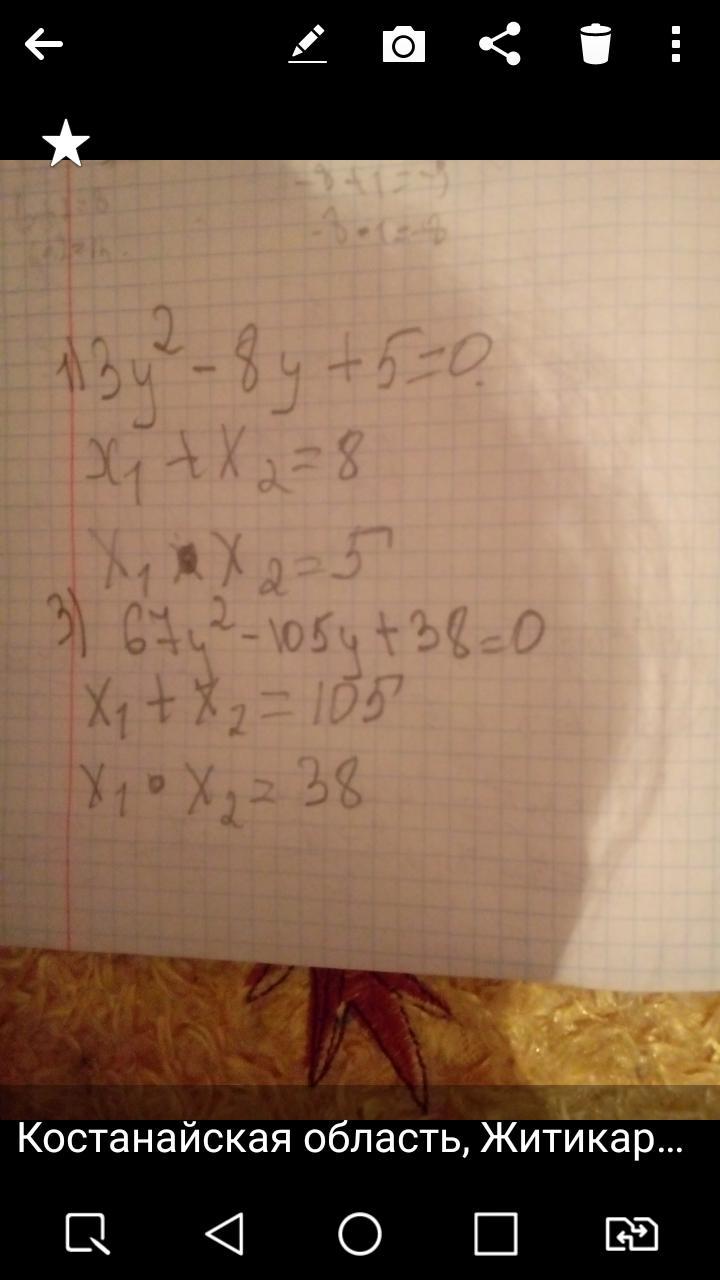 -8+1=-7
-8•1=-8
1) 3y² - 8y + 5 = 0
x₁ + x₂ = 8
x₁ • x₂ = 5
3) 67y² - 105y + 38 = 0
x₁ + x₂ = 105
x₁ • x₂ = 38
Костанайская область, Житикар...